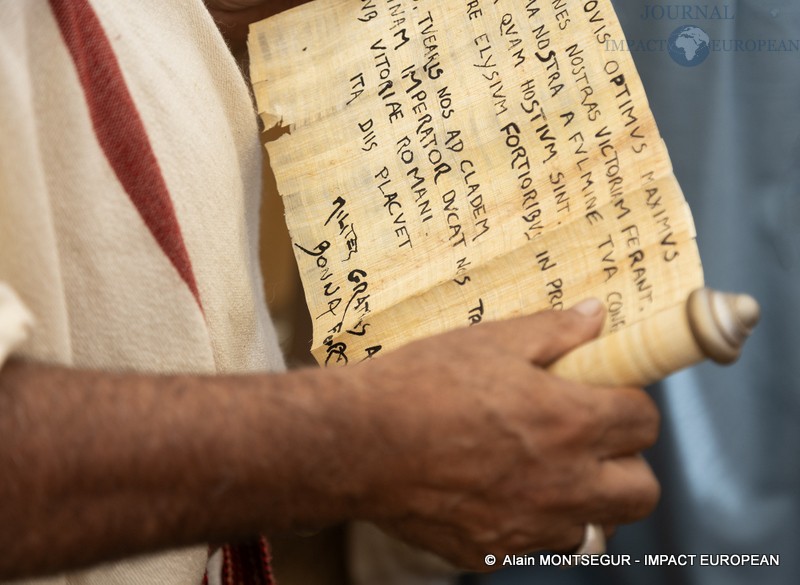 OVIS OPTIMVS MAXIMVS
NES NOSTRAS VICTORIVM FERANT.
MA NOSTRA A FVLMINE TVA CONF
A QVAM HOSTIVM SINT.
RE ELYSIVM FORTIORIBVS IN PRO
TVEARIS NOS AD CLADEM
NAM IMPERATOR DVCAT NOS TR
VITORIAE ROMANI.
ITA DIIS PLACVET
GRATIAS A
BONNA
JOURNAL
IMPACT EUROPEAN
© Alain MONTSEGUR - IMPACT EUROPEAN